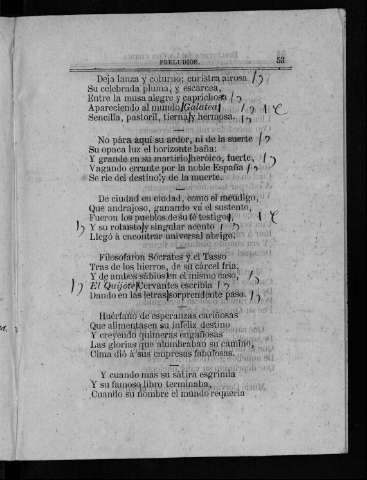 PRELUDIOS. 53
Deja lanza y coturno; enristra airosa
Su celebrada pluma, y escarcea,
Entre la musa alegre y caprichosa
Apareciendo al mundo Galatea
Sencilla, pastoril, tierna y hermosa.
No pára aquí su ardor, ni de la suerte
Su opaca luz el horizonte baña:
Y grande en su martirio, heróico, fuerte,
Vagando errante por la noble España
Se rie del destino y de la muerte.
De ciudad en ciudad, como el mendigo,
Que andrajoso, ganando vá el sustento,
Fueron los pueblos de su fé testigo,
Y su robusto y singular acento
Llegó á encontrar universal abrigo.
Filosofaron Sócrates y el Tasso
Tras de los hierros, de su cárcel fria,
Y de ambos sábios en el mismo caso,
El Quijote Cervantes escribia
Dando en las letras sorprendente paso.
Huérfano de esperanzas cariñosas
Que alimentasen su infeliz destino
Y creyendo quimeras engañosas
Las glorias que alumbraban su camino,
Cima dió á sus empresas fabulosas.
Y cuando mas su sátira esgrimia
Y su famoso libro terminaba,
Cuando su nombre el mundo requeria